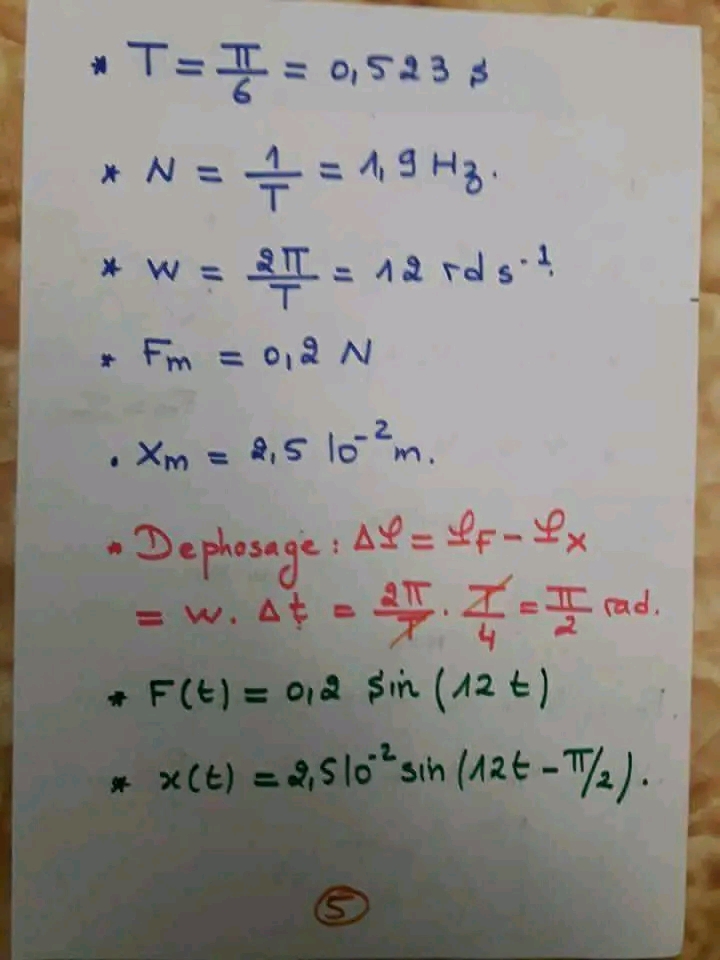 * T = π/6 = 0,523 s
* N = 1/T = 1,9 Hz.
* W = 2π/T = 12 rd s⁻¹.
* Fm = 0,2 N
. Xm = 2,5 10⁻² m.
* Dephosage : Δφ = φF - φx
= w. Δt = 2π/T . T/4 = π/2 rad.
* F(t) = 0,2 sin (12 t)
* x(t) = 2,5 10⁻² sin (12t - π/2).
5